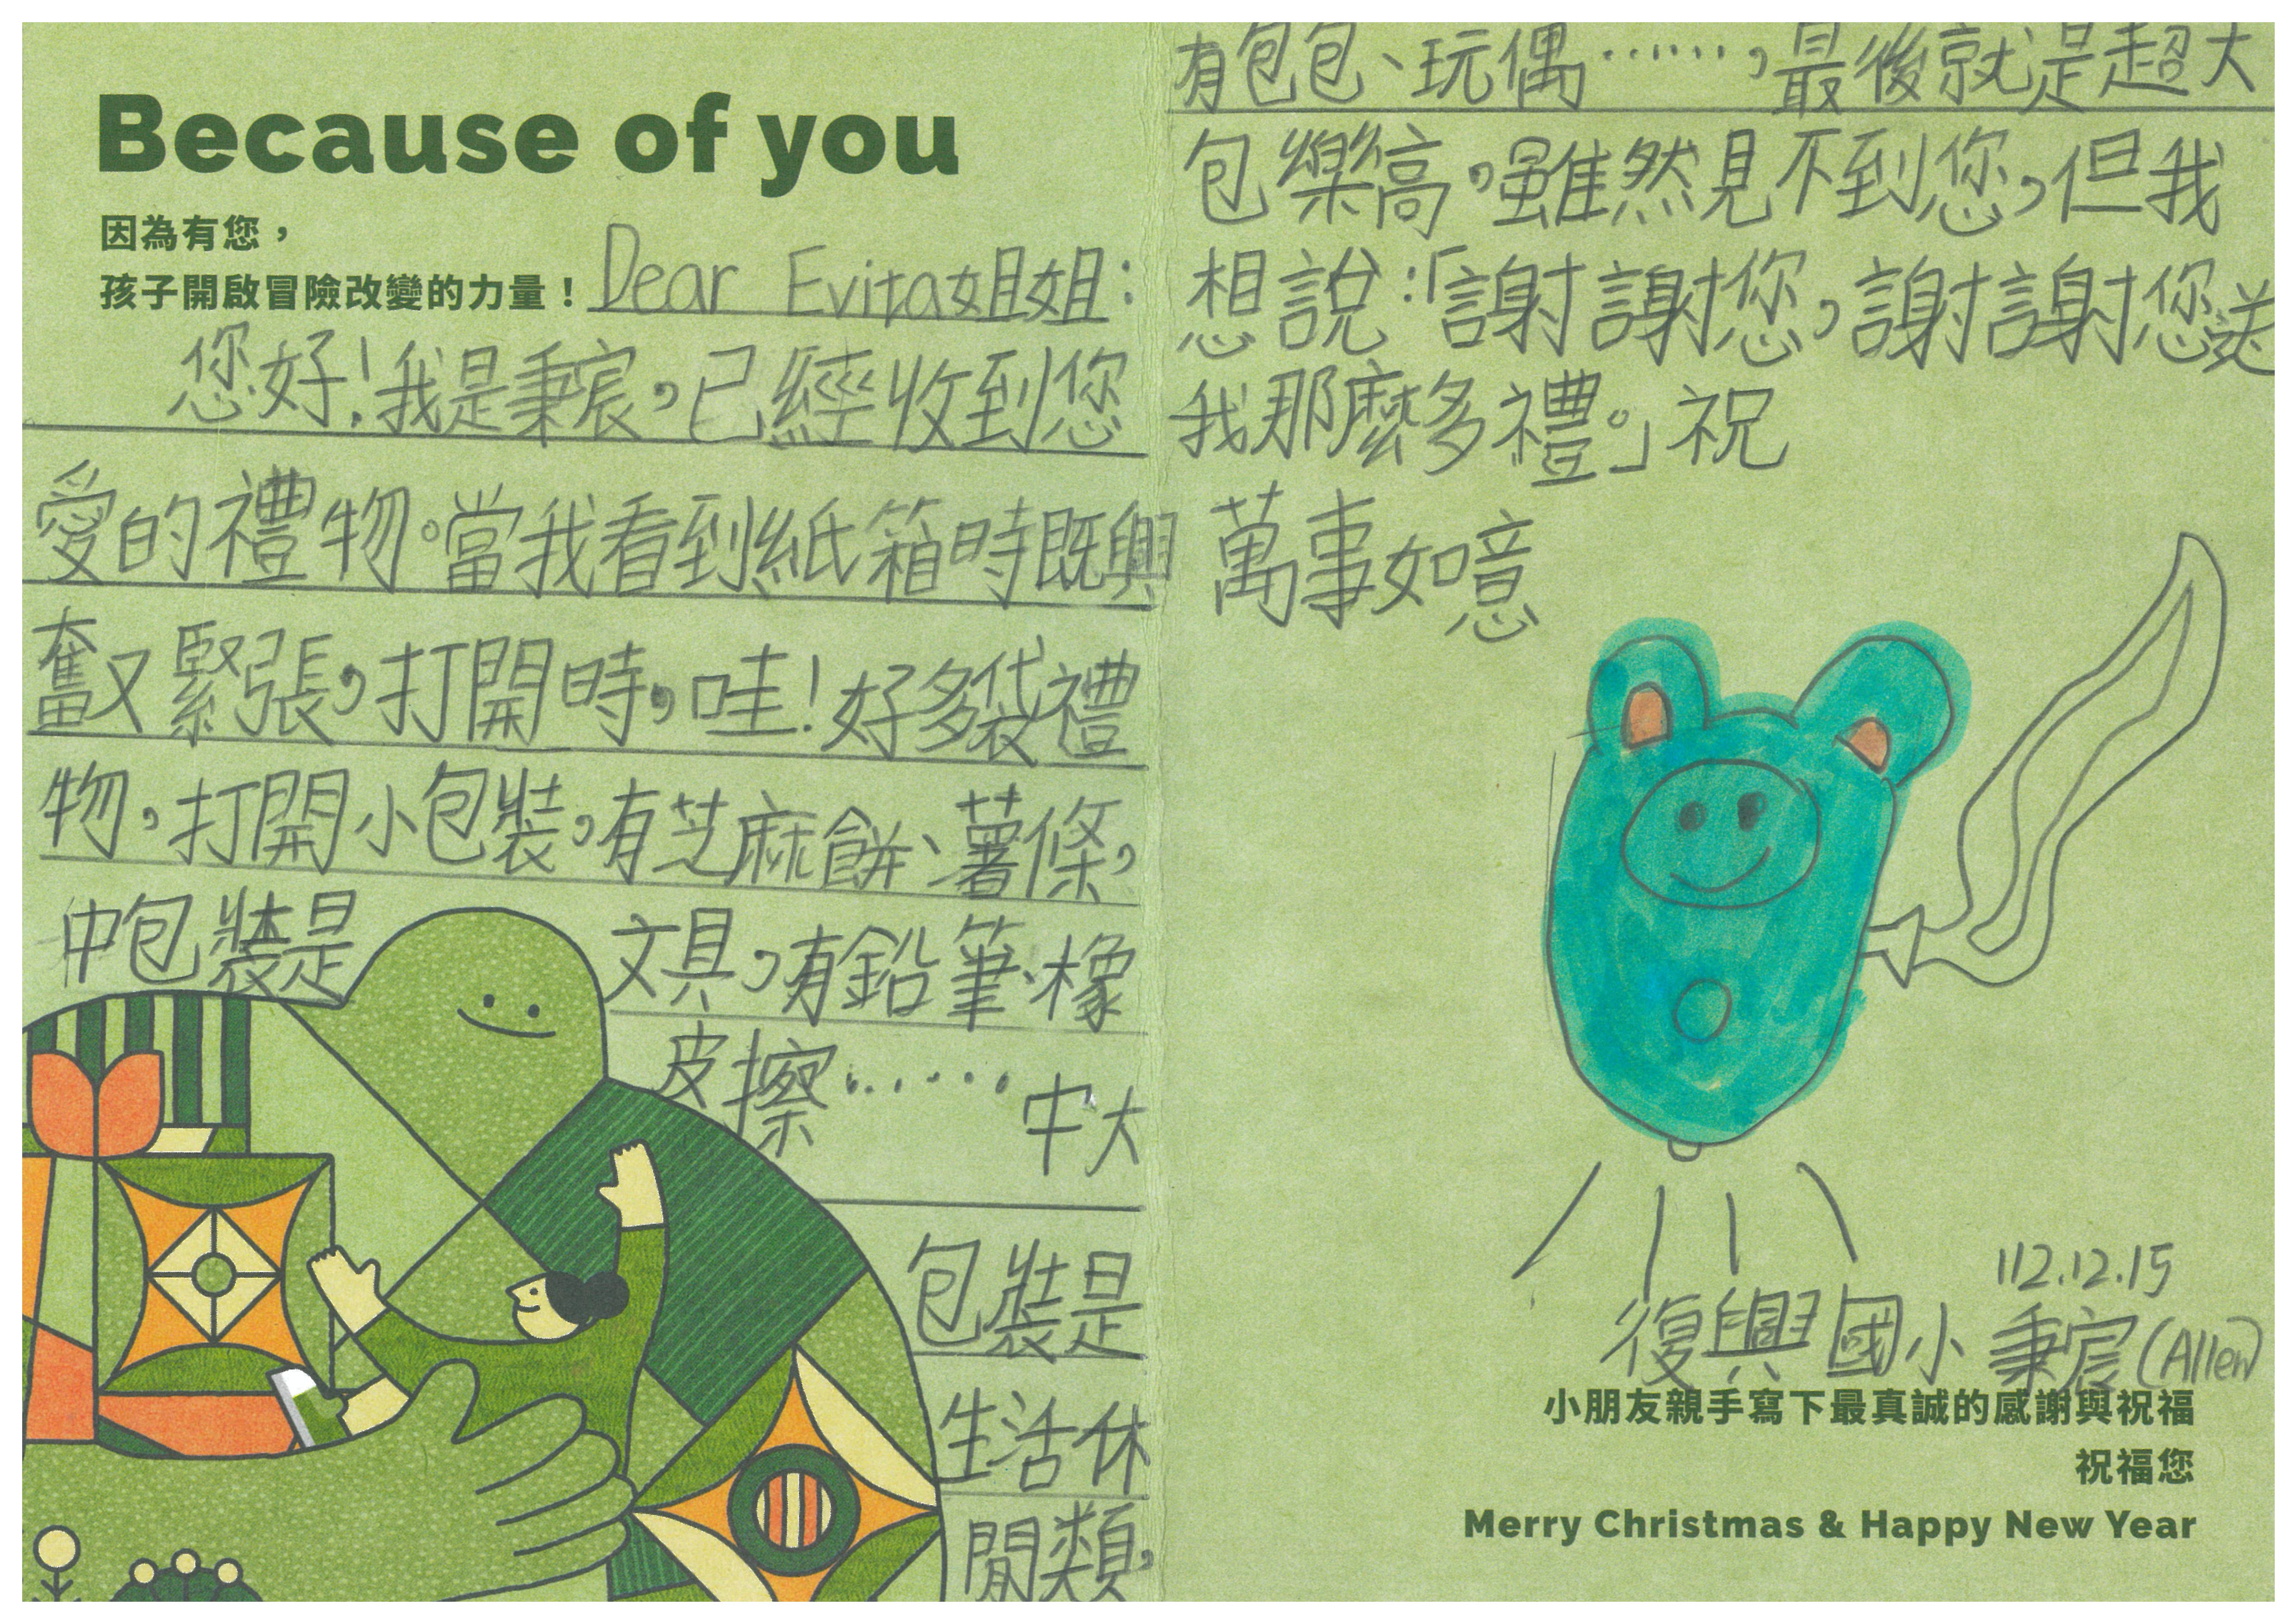 Because of you
因為有您，
孩子開啟冒險改變的力量！
Dear Evita姐姐：
您好！我是秉宸，已經收到您
愛的禮物。當我看到紙箱時既興
奮又緊張，打開時，哇！好多袋禮
物，打開小包裝，有芝麻餅、薯條，
中包裝是文具，有鉛筆、橡
皮擦……中大
包裝是
生活休
閒類，
有包包、玩偶……，最後就是超大
包樂高。雖然見不到您，但我
想說：「謝謝您，謝謝您送
我那麼多禮。」祝
萬事如意
112.12.15
復興國小 秉宸(Allen)
小朋友親手寫下最真誠的感謝與祝福
祝福您
Merry Christmas & Happy New Year